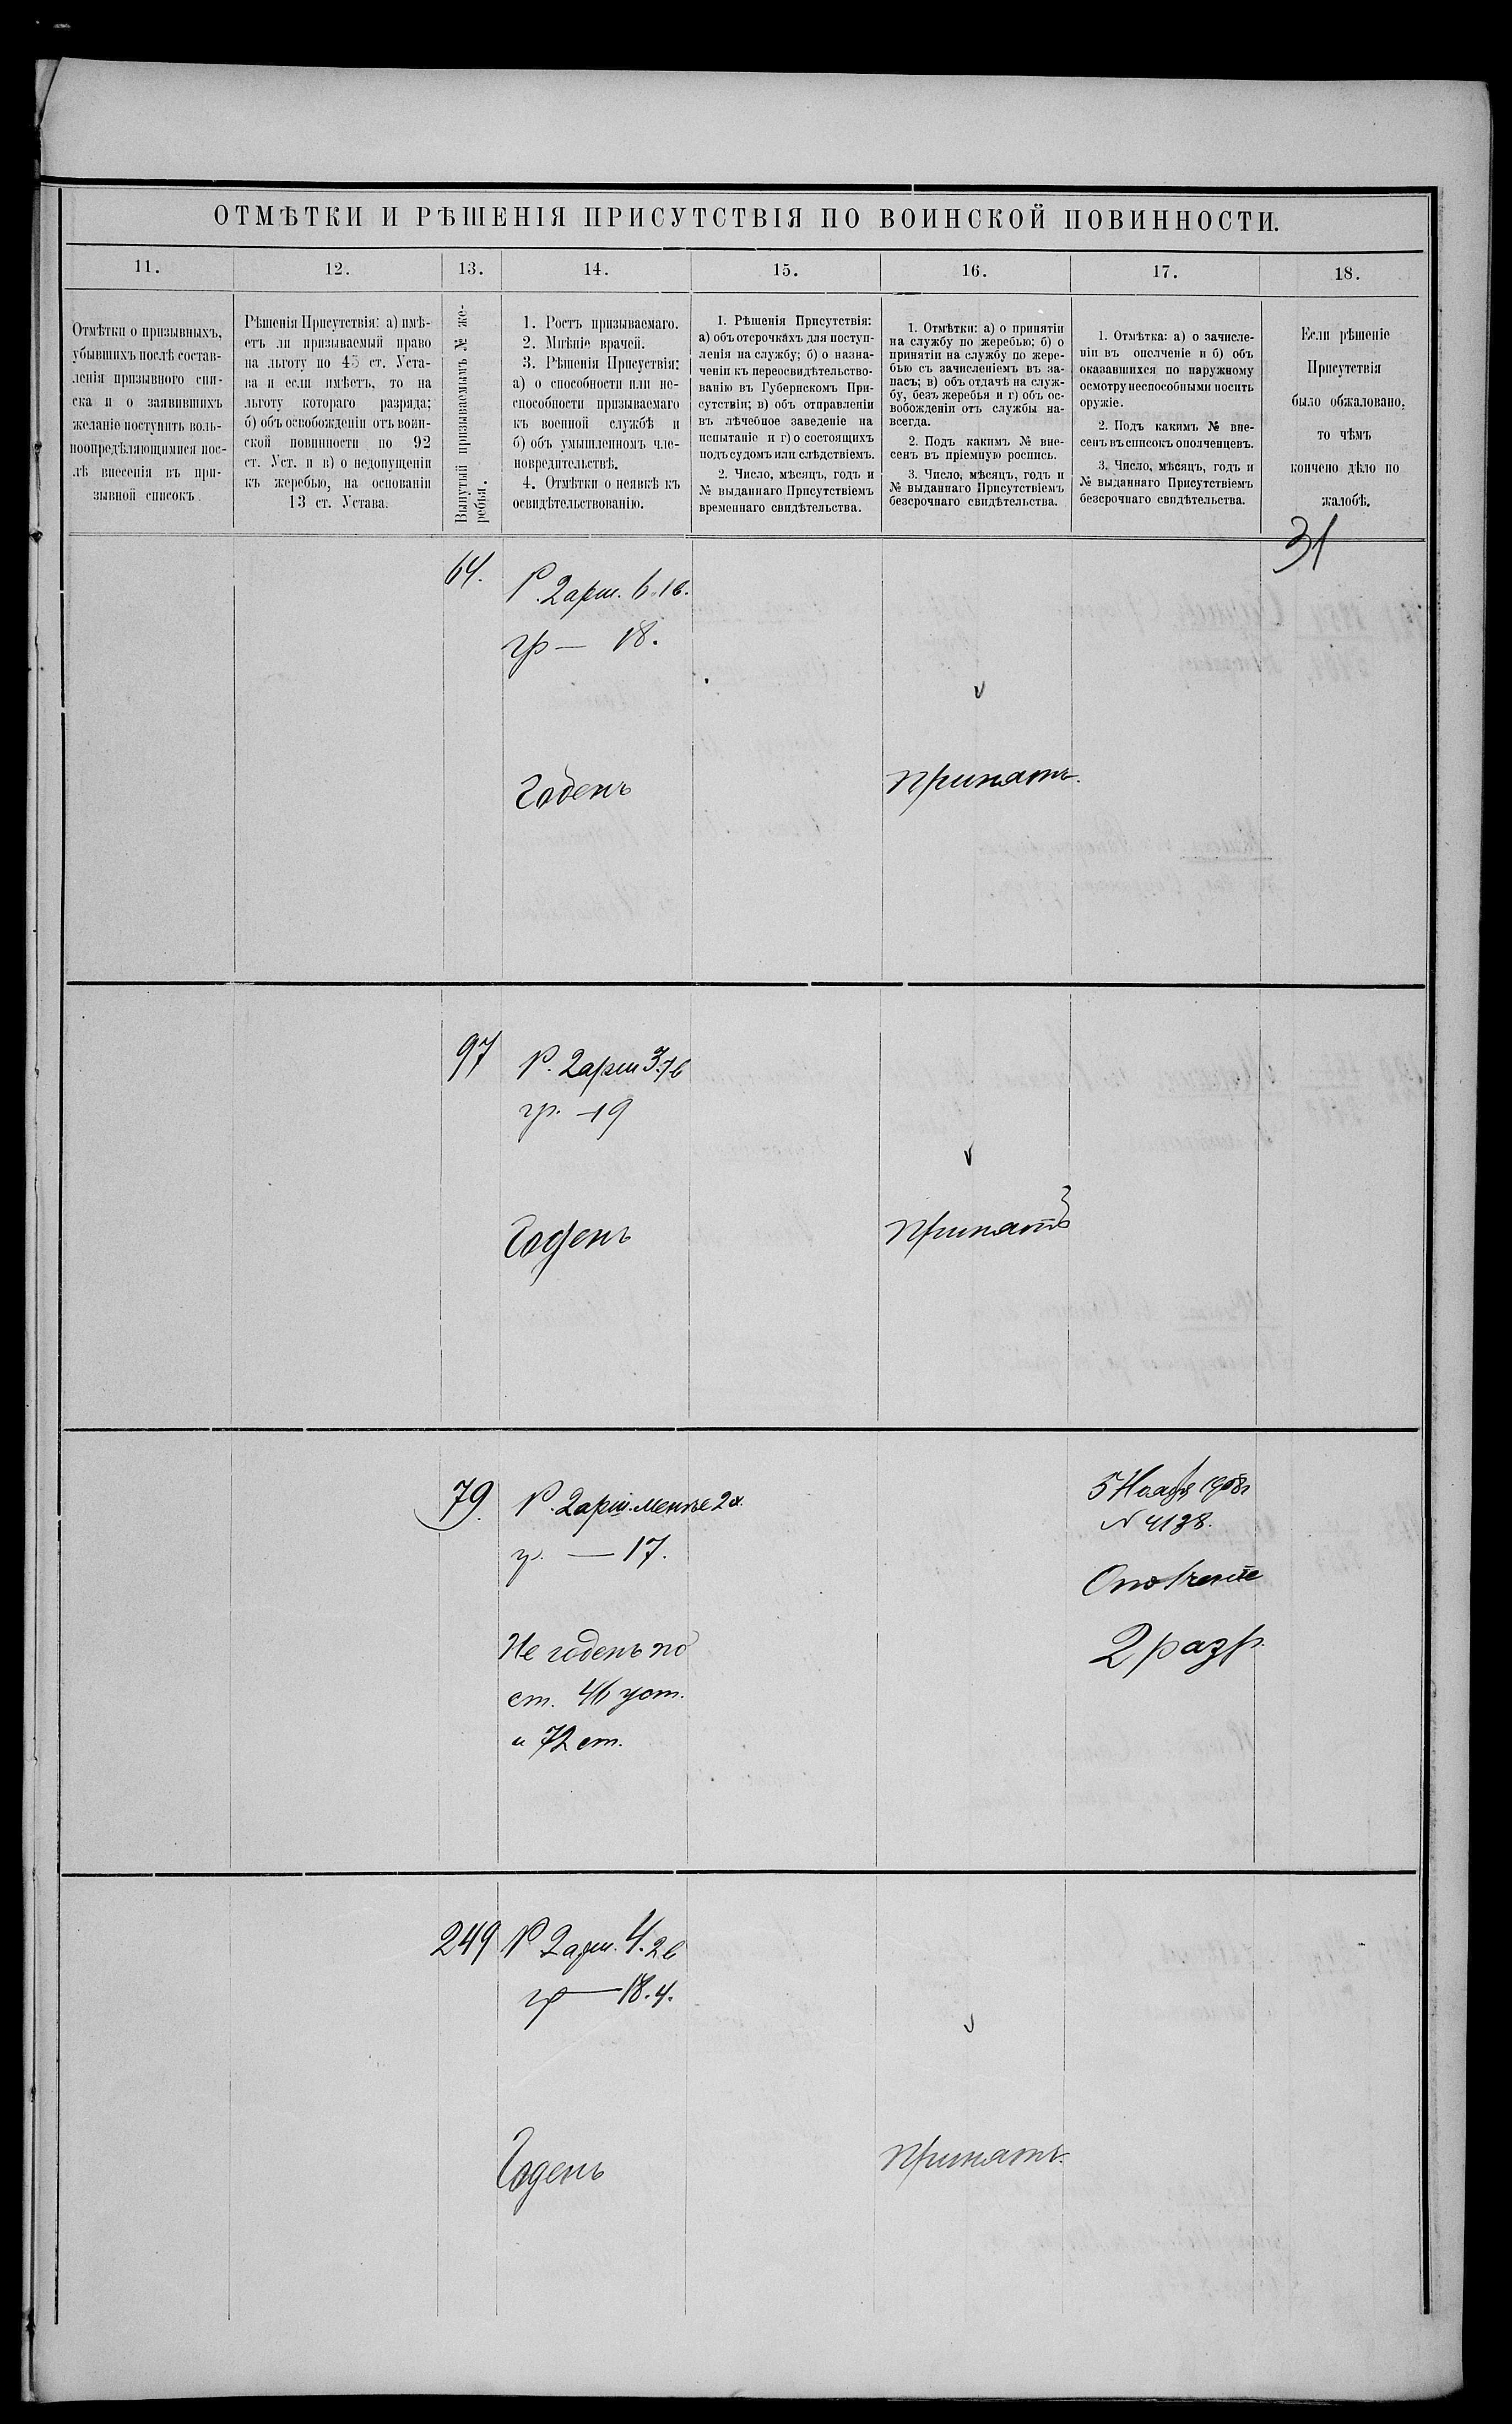 ОТМѢТКИ И РѢШЕНІЯ ПРИСУТСТВІЯ ПО ВОИНСКОЙ ПОВИННОСТИ.
11.
12.
13.
14.
15.
16.
17.
18.
Отмѣтки о призывныхъ,
убывшихъ послѣ состав-
ленія призывного спи-
ска и о заявившихъ
желаніе поступить воль-
ноопредѣляющимися пос-
лѣ внесенія въ при-
зывной списокъ.
Рѣшенія Присутствія: а) имѣ-
етъ ли призываемый право
на льготу по 45 ст. Уста-
ва и если имѣетъ, то на
льготу котораго разряда;
б) объ освобожденіи отъ воин-
ской повинности по 92
ст. Уст. и в) о недопущеніи
къ жеребью, на основаніи
13 ст. Устава.
Вынутый призываемымъ № же-
ребья.
1. Ростъ призываемаго.
2. Мнѣніе врачей.
3. Рѣшенія Присуствія:
а) о способности или не-
способности призываемаго
къ военной службѣ и
б) объ умышленномъ чле-
новредительствѣ.
4. Отмѣтки о неявкѣ къ
освидѣтельствованію.
1. Рѣшенія Присутствія:
а) объ отсрочкахъ для поступ-
ленія на службу; б) о назна-
ченіи къ переосвидѣтельство-
ванію въ Губернскомъ При-
сутствіи; в) объ отправленіи
въ лѣчебное заведеніе на
испытаніе и г) о состоящихъ
подъ судомъ или слѣдствіемъ.
2. Число, мѣсяцъ, годъ и
№ выданнаго Присутствіемъ
временнаго свидѣтельства.
1. Отмѣтки: а) о принятіи
на службу по жеребью; б) о
принятіи на службу по жере-
бью съ зачисленіемъ въ за-
пасъ; в) объ отдачѣ на служ-
бу, безъ жеребья и г) объ ос-
вобожденіи отъ службы на-
всегда.
2. Подъ какимъ № вне-
сенъ въ пріемную роспись.
3. Число, мѣсяцъ, годъ и
№ выданнаго Присутствіемъ
безсрочнаго свидѣтельства.
1. Отмѣтка: а) о зачисле-
ніи въ ополченіе и б) объ
оказавшихся по наружному
осмотру неспособными носить
оружіе.
2. Подъ какимъ № вне-
сенъ въ списокъ ополченцевъ.
3. Число, мѣсяцъ, годъ и
№ выданнаго Присутствіемъ
безсрочнаго свидѣтельства.
Если рѣшеніе
Присутствія
было обжаловано,
то чѣмъ
кончено дѣло по
жалобѣ.
31
64.
Р. 2 арш. 6 1в.
гр — 18.
Годенъ
Принятъ.
97
Р. 2 арш 3
гр. — 19
Годенъ
Принятъ
79.
Р. 2 арш. менѣе 2х.
гр. — 17.
Не годенъ по
ст. 46 уст.
и 72 ст.
5 Ноября 1908г
N 4138.
Ополченіе
2 разр.
249
Р 2 арш. 4. 2в
гр — 18.4.
Годенъ
Принятъ.